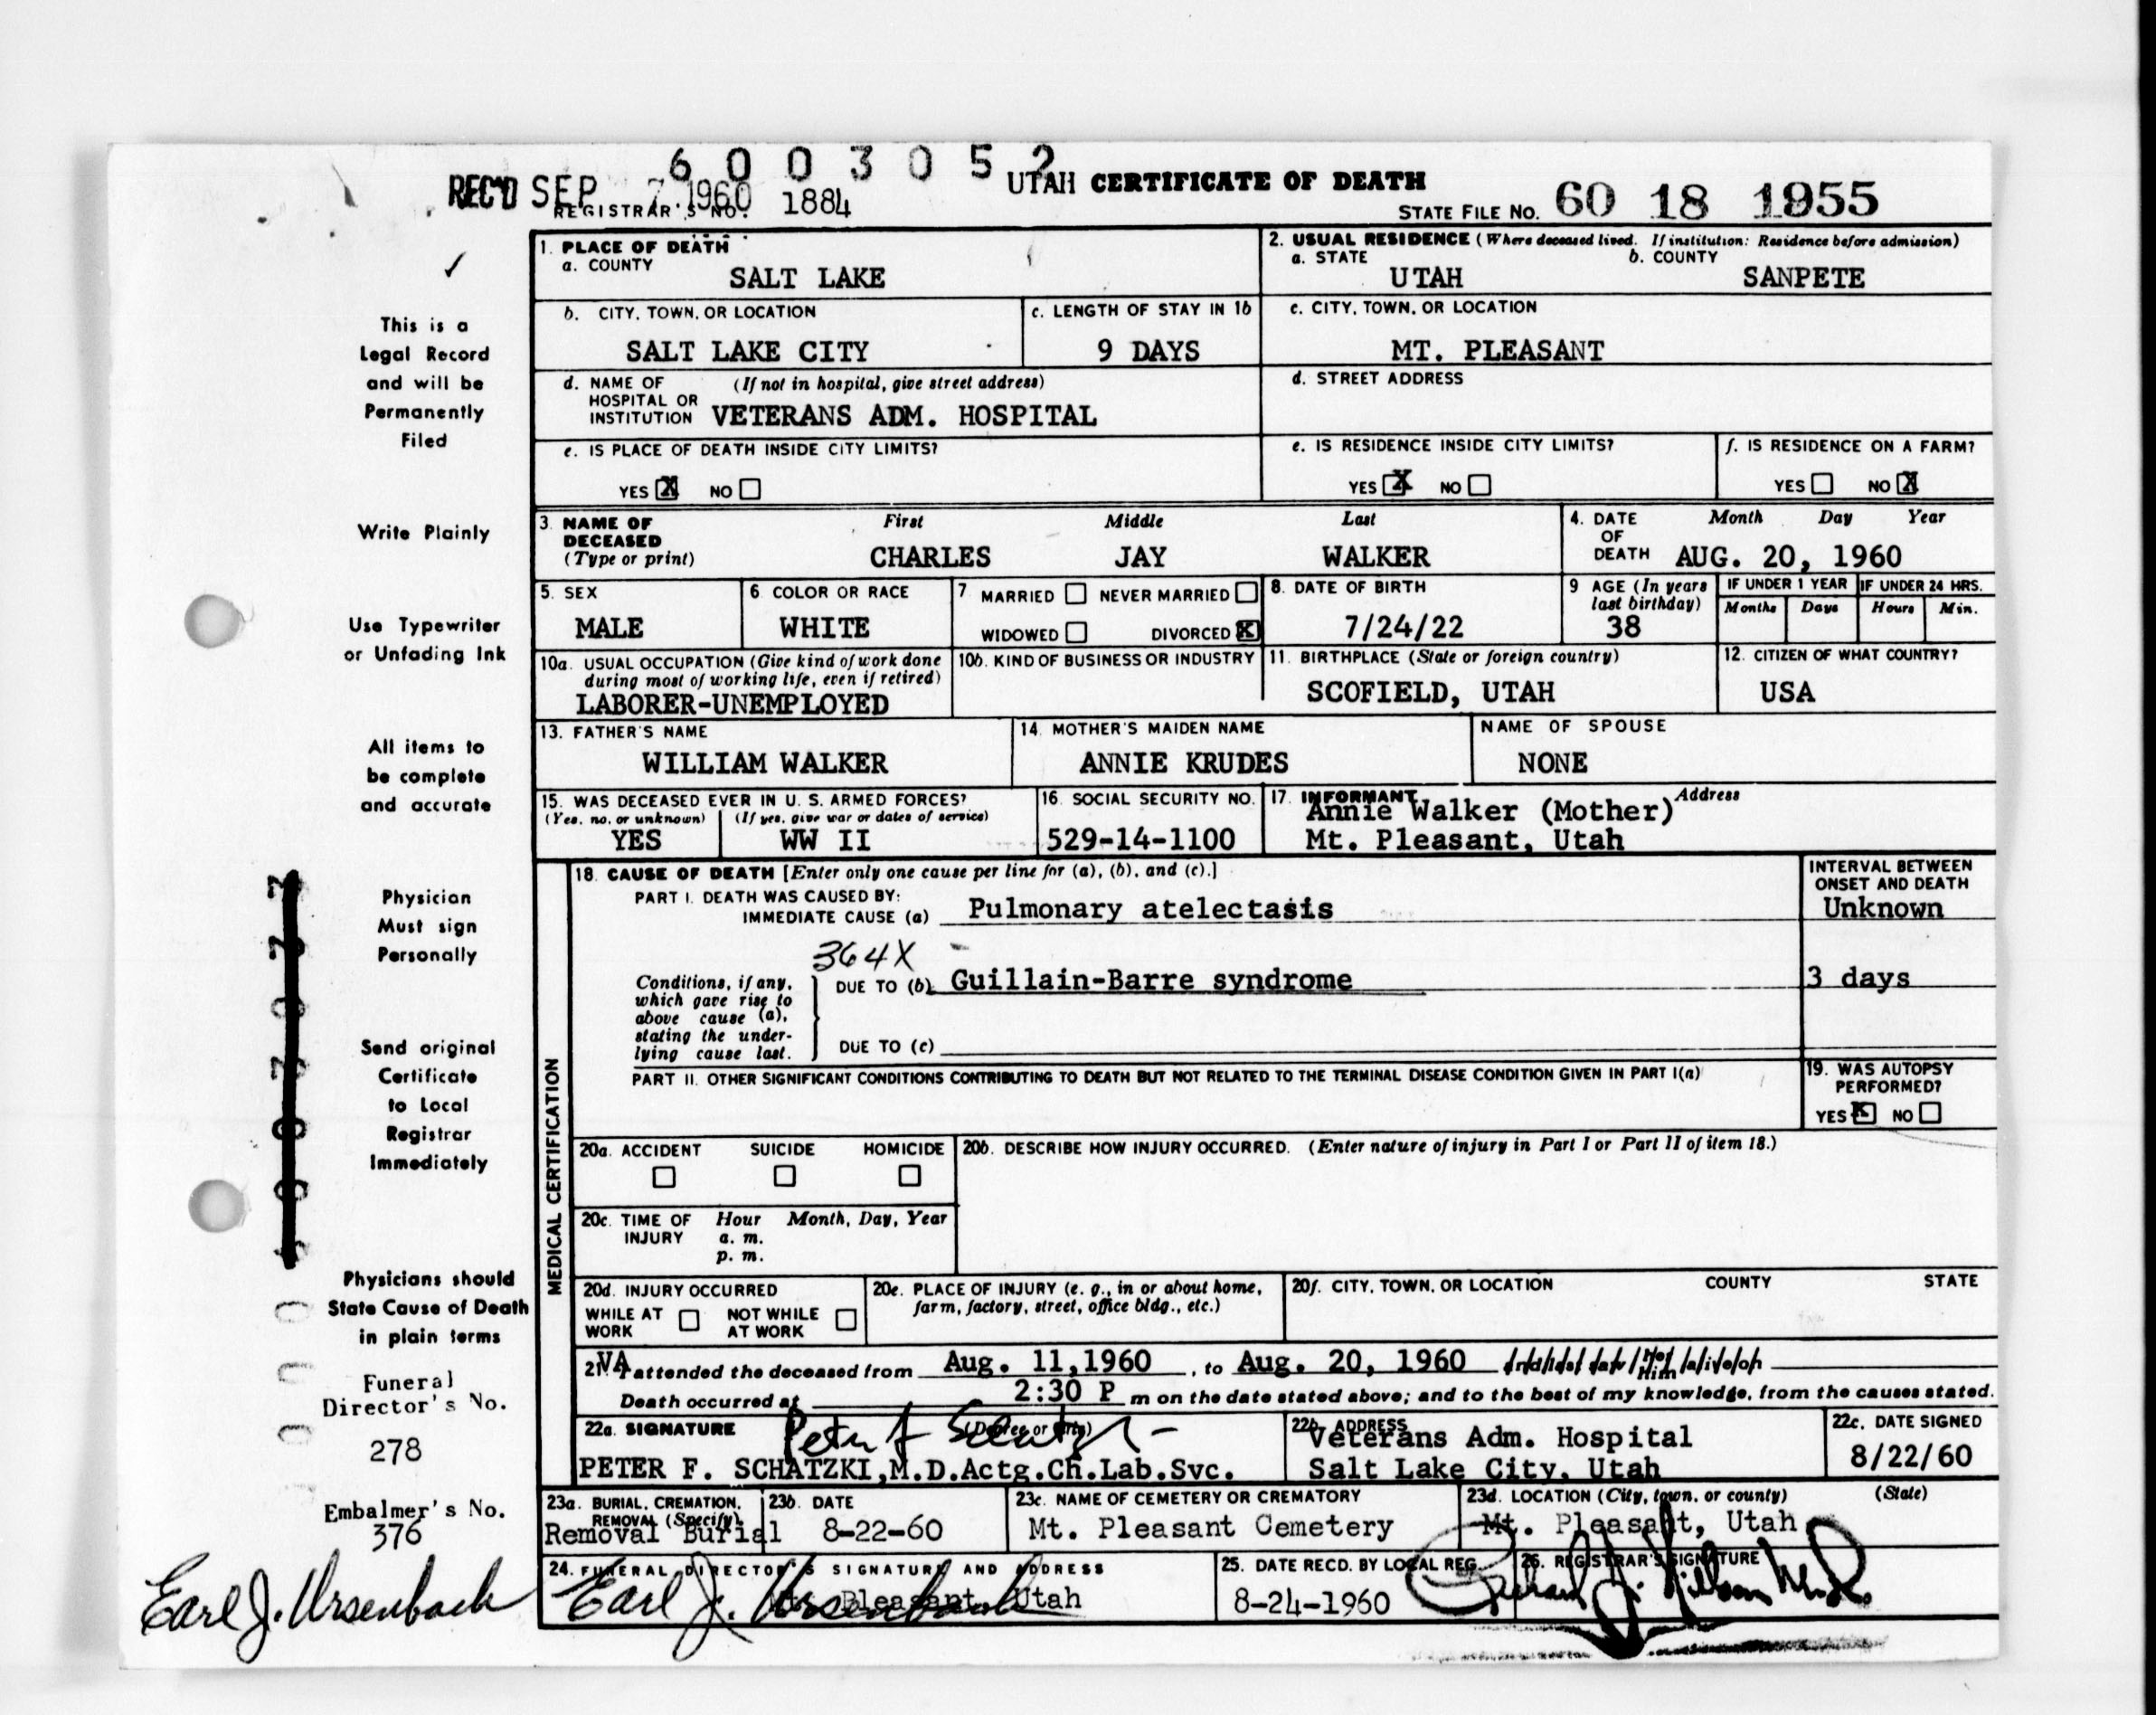 6 0 0 3 0 5 2
REC'D SEP 7 1960 REGISTRAR'S NO. 1884
UTAH CERTIFICATE OF DEATH
STATE FILE NO. 60 18 1955
✓
This is a
Legal Record
and will be
Permanently
Filed
Write Plainly
Use Typewriter
or Unfading Ink
All items to
be complete
and accurate
Physician
Must sign
Personally
Send original
Certificate
to Local
Registrar
Immediately
Physicians should
State Cause of Death
in plain terms
Funeral
Director's No.
278
Embalmer's No.
376
Earl J. Ursenbach
1. PLACE OF DEATH
a. COUNTY
SALT LAKE
2. USUAL RESIDENCE (Where deceased lived. If institution: Residence before admission)
a. STATE b. COUNTY
UTAH SANPETE
b. CITY, TOWN, OR LOCATION
SALT LAKE CITY
c. LENGTH OF STAY IN 1b
9 DAYS
c. CITY, TOWN, OR LOCATION
MT. PLEASANT
d. NAME OF (If not in hospital, give street address)
HOSPITAL OR
INSTITUTION VETERANS ADM. HOSPITAL
d. STREET ADDRESS
e. IS PLACE OF DEATH INSIDE CITY LIMITS?
YES X NO
e. IS RESIDENCE INSIDE CITY LIMITS?
YES X NO
f. IS RESIDENCE ON A FARM?
YES NO X
3. NAME OF First Middle Last
DECEASED
(Type or print) CHARLES JAY WALKER
4. DATE Month Day Year
OF
DEATH AUG. 20, 1960
5. SEX
MALE
6. COLOR OR RACE
WHITE
7. MARRIED NEVER MARRIED
WIDOWED DIVORCED X
8. DATE OF BIRTH
7/24/22
9 AGE (In years
last birthday)
38
IF UNDER 1 YEAR IF UNDER 24 HRS.
Months Days Hours Min.
10a. USUAL OCCUPATION (Give kind of work done
during most of working life, even if retired)
LABORER-UNEMPLOYED
10b. KIND OF BUSINESS OR INDUSTRY
11. BIRTHPLACE (State or foreign country)
SCOFIELD, UTAH
12. CITIZEN OF WHAT COUNTRY?
USA
13. FATHER'S NAME
WILLIAM WALKER
14. MOTHER'S MAIDEN NAME
ANNIE KRUDES
NAME OF SPOUSE
NONE
15. WAS DECEASED EVER IN U. S. ARMED FORCES?
(Yes, no, or unknown) (If yes, give war or dates of service)
YES WW II
16. SOCIAL SECURITY NO.
529-14-1100
17. INFORMANT Address
Annie Walker (Mother)
Mt. Pleasant, Utah
MEDICAL CERTIFICATION
18. CAUSE OF DEATH [Enter only one cause per line for (a), (b), and (c).]
PART I. DEATH WAS CAUSED BY:
IMMEDIATE CAUSE (a) Pulmonary atelectasis
INTERVAL BETWEEN
ONSET AND DEATH
Unknown
364X
Conditions, if any,
which gave rise to
above cause (a),
stating the under-
lying cause last.
DUE TO (b) Guillain-Barre syndrome
3 days
DUE TO (c)
PART II. OTHER SIGNIFICANT CONDITIONS CONTRIBUTING TO DEATH BUT NOT RELATED TO THE TERMINAL DISEASE CONDITION GIVEN IN PART I(a)
19. WAS AUTOPSY
PERFORMED?
YES X NO
20a. ACCIDENT SUICIDE HOMICIDE
20b. DESCRIBE HOW INJURY OCCURRED. (Enter nature of injury in Part I or Part II of item 18.)
20c. TIME OF Hour Month, Day, Year
INJURY a. m.
p. m.
20d. INJURY OCCURRED
WHILE AT NOT WHILE
WORK AT WORK
20e. PLACE OF INJURY (e. g., in or about home,
farm, factory, street, office bldg., etc.)
20f. CITY, TOWN, OR LOCATION COUNTY STATE
21. VA attended the deceased from Aug. 11,1960, to Aug. 20, 1960
Death occurred at 2:30 P m on the date stated above; and to the best of my knowledge, from the causes stated.
22a. SIGNATURE (Degree or title)
PETER F. SCHATZKI,M.D.Actg.Ch.Lab.Svc.
22b. ADDRESS
Veterans Adm. Hospital
Salt Lake City, Utah
22c. DATE SIGNED
8/22/60
23a. BURIAL, CREMATION,
REMOVAL (Specify)
Removal Burial
23b. DATE
8-22-60
23c. NAME OF CEMETERY OR CREMATORY
Mt. Pleasant Cemetery
23d. LOCATION (City, town, or county) (State)
Mt. Pleasant, Utah
24. FUNERAL DIRECTOR'S SIGNATURE AND ADDRESS
Earl J. Ursenbach
Mt. Pleasant, Utah
25. DATE RECD. BY LOCAL REG.
8-24-1960
26. REGISTRAR'S SIGNATURE